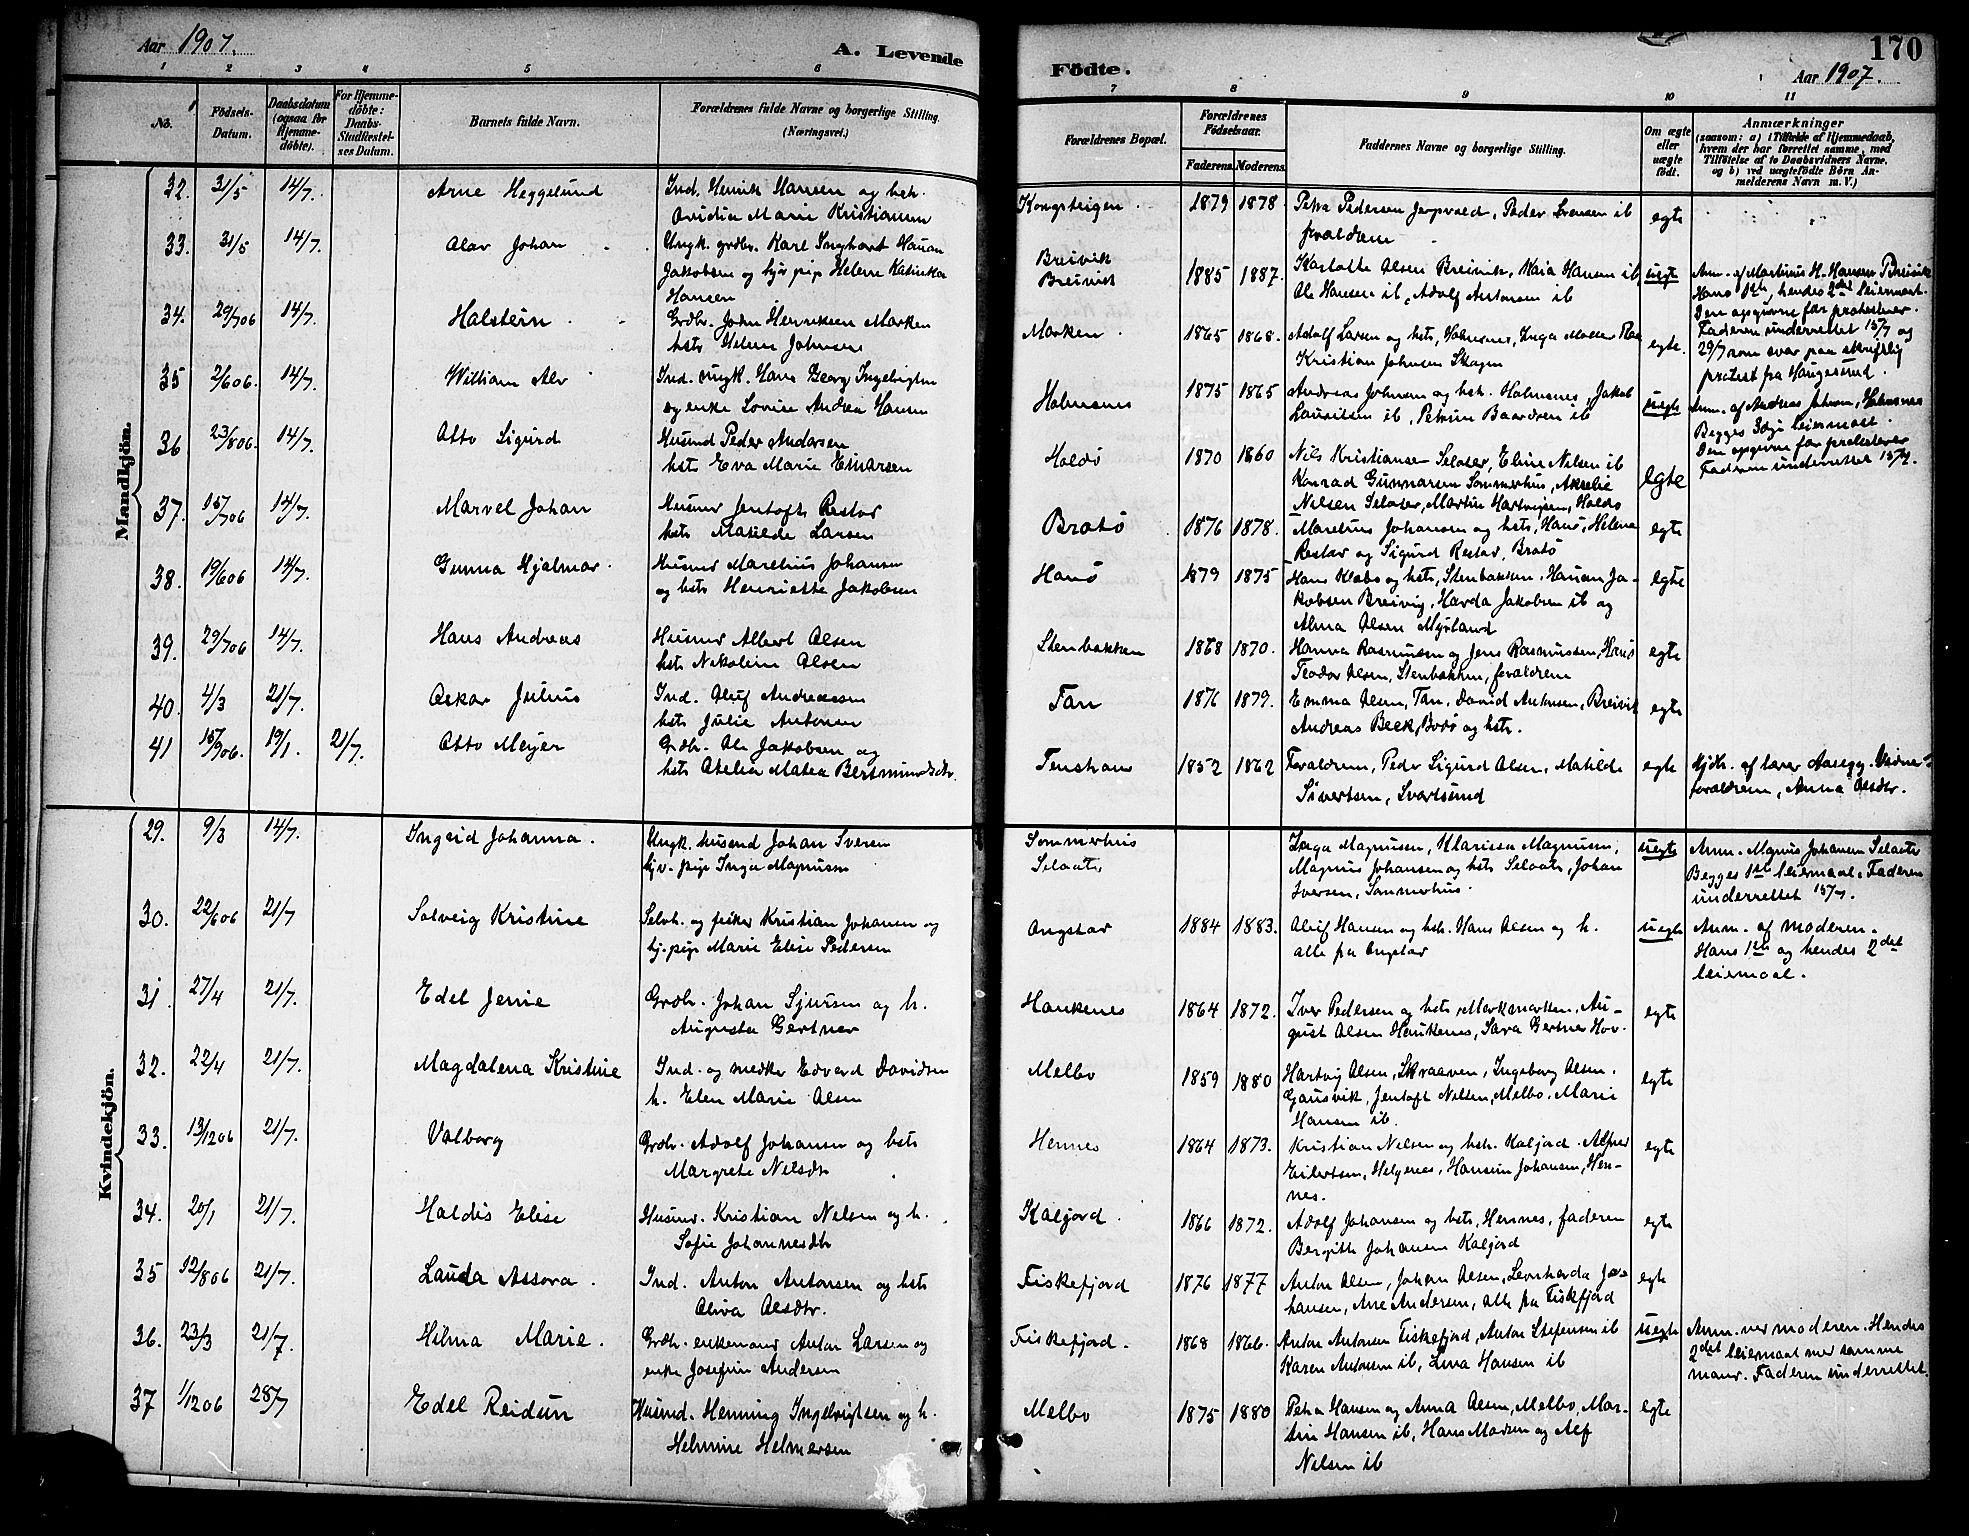 Aar 1907.
A. Levende
Födte.
170
Aar 1907.
1 2 3 4 5 6 7 8 9 10 11
No.
Födsels-
Datum.
Daabsdatum
(ogsaa for
Hjemme-
döbte).
For Hjemme-
döbte:
Daabs-
Stadfæstel-
ses Datum.
Barnets fulde Navn.
Forældrenes fulde Navne og borgerlige Stilling.
(Næringsvei.)
Forældrenes Bopæl.
Forældrenes
Födselsaar.
Faderens. Moderens.
Faddernes Navne og borgerlige Stilling.
Om ægte
eller
uægte
födt.
Anmærkninger
(saasom: a) i Tilfælde af Hjemmedaab,
hvem der har forrettet samme, med
Tilföielse af to Daabsvidners Navne,
og b) ved uægtefödte Börn An-
melderens Navn m. V.)
Mandkjön.
32. 31/5 14/7. Arne Heggelund Ind. Henrik Hansen og hst.
Ovidia Marie Kristiansen
Kongsteigen. 1879 1878. Petra Pedersen Jerpvold, Peder Svensen ib
forældrene
egte
33. 31/5 14/7. Olav Johan Ungk. grdbr. Karl Inghart Hauan
Jakobsen og tj pige Helene Katinka
Hansen
Breivik
Breivik
1885 1887. Karlotte Olsen Breivik, Kaia Hansen ib,
Ole Hansen ib, Adolf Antonsen ib
uegte
Anm. af Martinus H. Hansen Breivik
Hans 1ste, hendes 2det leiermaal.
Den opgivne far protesterer.
Faderen underrettet 15/7 og
29/7 som svar paa skriftlig
protest fra Haugesund.
34. 29/706 14/7. Halstein Grdbr. John Henriksen Marken
hst Helene Johnsen
Marken. 1865 1868. Adolf Larsen og hst, Holmsnes, Inga Moller
Kristian Johnsen Skagen
egte.
35 2/606. 14/7. William Alv Ind. ungk. Hans Georg Ingebrigtsen
og enke Lovise Andrea Hansen
Holmsnes 1875 1865 Andreas Johnsen og hst. Holmsnes, Jakob
Lauritsen ib, Petrine Baardsen ib
uegte
Anm. af Andreas Johnsen, Holmsnes
Begges 3die leiermaal.
Den opgivne far protesterer
Faderen underrettet 15/7.
36 23/806. 14/7. Otto Sigurd Husmd Peder Andersen
hst Eva Marie Einarsen
Holdö 1870 1860 Nils Kristiansen Selaater, Eline Nilsen ib
Konrad Gunnarsen Sommerhus, Akselie
Nilsen Selater, Martin Hartvigsen, Holdö
egte
37. 15/706 14/7. Marvel Johan Husmd Jentoft Restav
hst Matilde Larsen
Brotö 1876 1878. Marelius Johansen og hst, Hanö, Helena
Restav og Sigurd Restav, Brotö
egte
38. 19/606 14/7. Gunna Hjalmar. Husmd Marelius Johansen
og hst Henriette Jakobsen
Hanö 1879 1875 Hans Klabo og hst, Stenbakken, Hauan Ja-
kobsen Breivig, Harda Jakobsen ib og
Alma Olsen Myrland
egte
39. 29/706 14/7. Hans Andreas Husmd Albert Olsen
hst Nikoline Olsen
Stenbakken 1868 1870. Hanna Rasmussen og Jens Rasmussen, Hanö
Teodor Olsen, Stenbakken, forældrene
egte
40. 4/3 21/7. Oskar Julius Ind. Oluf Andreassen
hst Julie Antonsen
Fan 1876 1879. Emma Olsen, Fan, David Antonsen, Breivik
Andreas Beck, Bodö og hst.
egte
41 15/906. 19/1. 21/7. Otto Meyer Grdbr. Ole Jakobsen og
hst Otelia Matea Bertmindsdtr.
Tenshavn 1852 1862 Forældrene, Peder Sigurd Olsen, Matilde
Sivertsen, Svartsund
egte
Hjdb. af lærer Aasegg. Vidner:
forældrene, Anna Olsdtr.
Kvindekjön.
29. 9/3 14/7. Ingrid Johanna. Ungk. husmd Johan Iversen
tjv. pige Inga Magnussen
Sommerhus
Selaater
Inga Magnussen, Klarissa Magnussen,
Magnus Johansen og hst Selaater, Johan
Iversen, Sommerhus.
uegte
Anm. Magnus Johansen Selaater
Begges 1ste leiermaal. Faderen
underrettet 15/7.
30. 22/606 21/7 Solveig Kristine Selvh. og fisker Kristian Johansen og
tj. pige Marie Elise Pedersen
Ongstav 1884 1883. Oluf Hansen og hst. Hans Olsen og h.
alle fra Ongstav
uegte
Anm. af moderen.
Hans 1ste og hendes 2det
leiermaal.
31. 27/4 21/7. Edel Jenie Grdbr. Johan Sjursen og h.
Augusta Gertner
Haukenes 1864 1872. Iver Pedersen og hst, Markmarken, Au-
gust Olsen Haukenes, Sara Gertner Hov.
egte
32. 22/4 21/7. Magdalena Kristine Ind. og snedker Edvard Davidsen
h. Elen Marie Olsen
Melbo 1859 1880 Hartvig Olsen, Skraaven, Ingeborg Olsen.
Gausvik, Jentoft Nilsen, Melbo. Marie
Hansen ib.
egte
33. 13/1206 21/7. Valborg Grdbr. Adolf Johansen og hst
Margrete Nilsdtr
Hennes 1864 1873. Kristian Nilsen og hst. Kaljord. Alfred
Eilertsen, Helgenes, Hansine Johansen, Hen-
nes.
egte
34. 20/1 21/7. Haldis Elise Husmd. Kristian Nilsen og h.
Sofie Johannesdtr
Kaljord. 1866 1872. Adolf Johansen og hst, Hennes, faderen
Bergitte Johansen Kaljord
egte
35 12/806 21/7. Lauda Assora. Ind. Anton Antonsen og hst
Oliva Olsdtr.
Fiskefjord 1876 1877 Anton Olsen, Johan Olsen, Leonharda Jo-
hansen, Ane Andersen, alle fra Fiskfjord
egte
36. 23/3 21/7. Hilma Marie. Grdbr. enkemand Anton Larsen og
enke Josefine Andersen
Fiskefjord. 1868 1866. Anton Antonsen Fiskefjord, Anton Stefensen ib
Karen Antonsen ib, Lina Hansen ib
uegte
Anm. ved moderen. Hendes
2det leiermaal med samme
mand. Faderen underrettet.
37 1/1206 28/7 Edel Reidun Husmd. Henning Ingebrigtsen og h.
Helmine Helmersen
Melbo 1875 1880 Petra Hansen og Anna Olsen, Melbo, Mar-
tin Hansen ib, Hans Madsen og Alf
Nilsen ib
egte